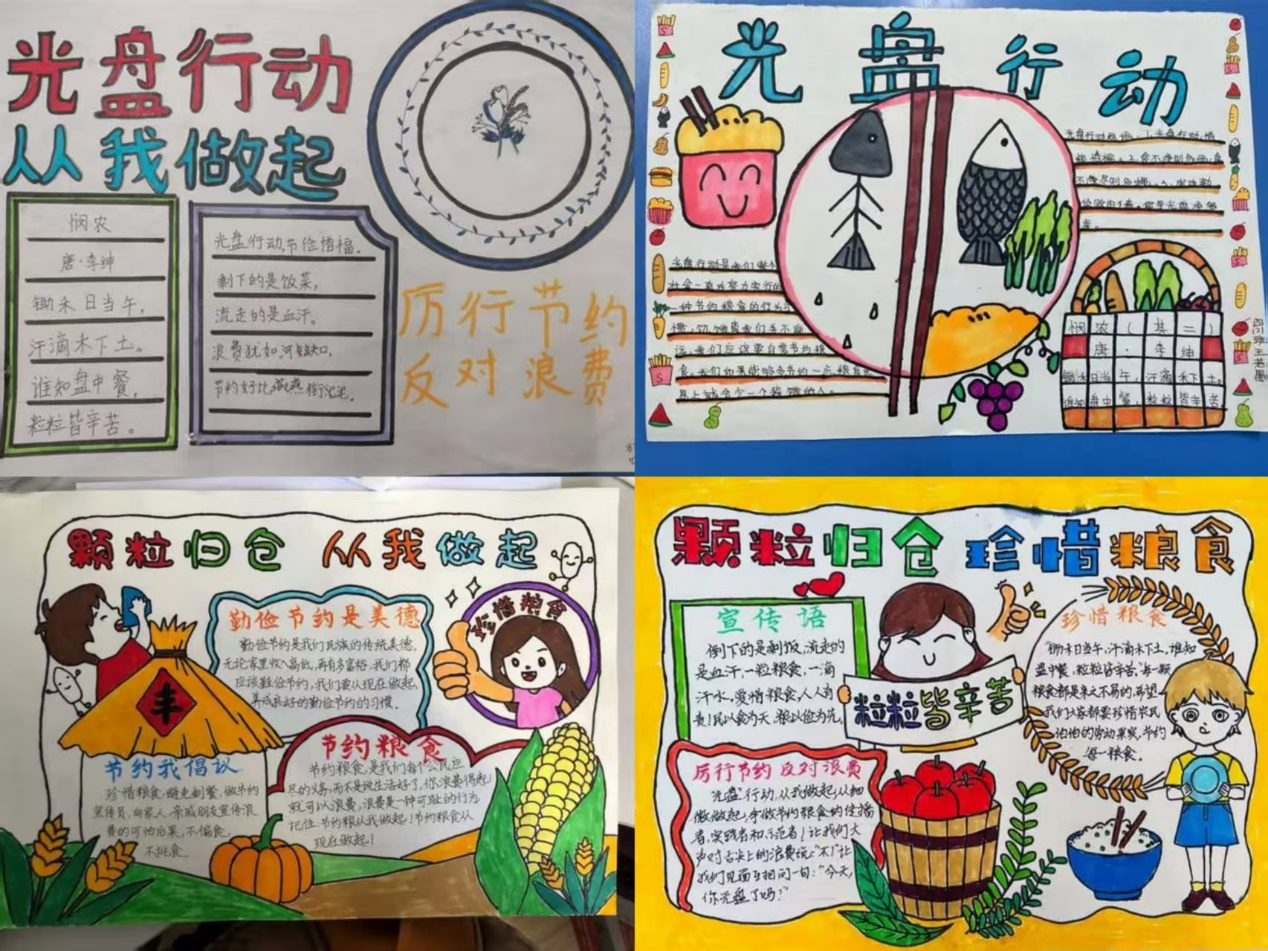 光盘行动
从我做起
悯农
唐·李绅
锄禾日当午,
汗滴禾下土。
谁知盘中餐,
粒粒皆辛苦。
光盘行动,节俭惜福。
剩下的是饭菜,
流走的是血汗。
浪费犹如河缺口,
节约好比燕衔泥。
厉行节约
反对浪费
光盘行动
光盘行动是我们整个
社会一直
一种节约粮食的行为
食,我们如果能够多节约一点粮食
悯农(其二)
唐·李绅
锄禾日当午,汗滴禾下土。
谁知盘中餐,粒粒皆辛苦
颗粒归仓 从我做起
珍惜粮食
丰
勤俭节约是美德
勤俭节约是我们民族的传统美德,
无论家里收入高低,再有多富裕,我们都
应该勤俭节约,我们要从现在做起,
养成良好的勤俭节约的习惯。
节约粮食
节约粮食,是我们每个公民应
尽的义务,而不是说生活好了,你浪费得起
就可以浪费,浪费是一种可耻的行为
记住:节约粮从我做起!节约粮食从
现在做起!
节约我倡议
珍惜粮食,避免剩餐,做节约
宣传员,向家人、亲戚朋友宣传浪
费的可怕后果,不偏食,
不挑食。
颗粒归仓 珍惜粮食
宣传语
倒下的是剩饭,流走的
是血汗,一粒粮食,一滴
汗水,爱惜粮食,人人有
责!民以食为天,粮以俭为先。
粒粒皆辛苦
珍惜粮食
锄禾日当午,汗滴禾下土,谁知
盘中餐,粒粒皆辛苦,每一颗
粮食都是来之不易的,希望
我们大家都要珍惜农民
伯伯的劳动果实,节约
每一粮食。
厉行节约 反对浪费
光盘行动,从我做起,从细
微做起,争做节约粮食的传播
者,实践者和示范者!让我们大
声对舌尖上的浪费说:"不!"让
我们见面互相问一句:"今天,
你光盘了吗?"